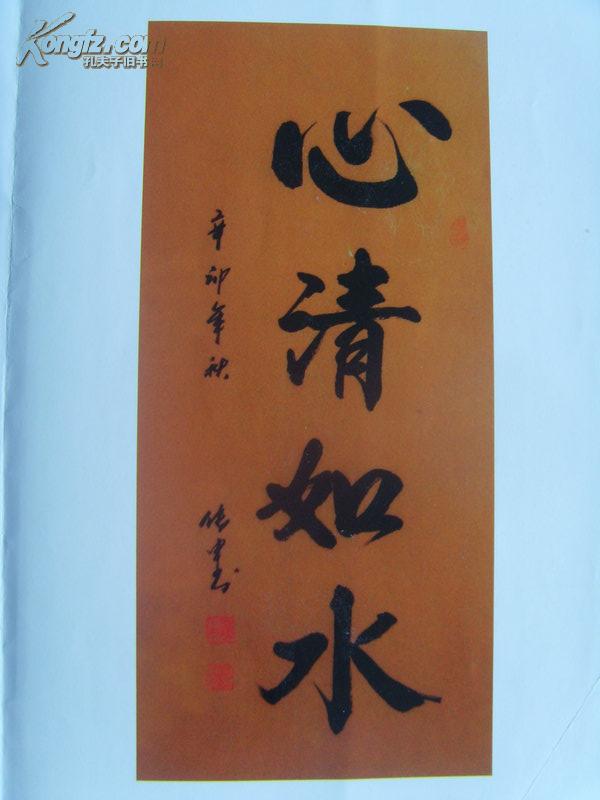 Kongfz.com
孔夫子旧书网
心清如水
辛卯年秋
书